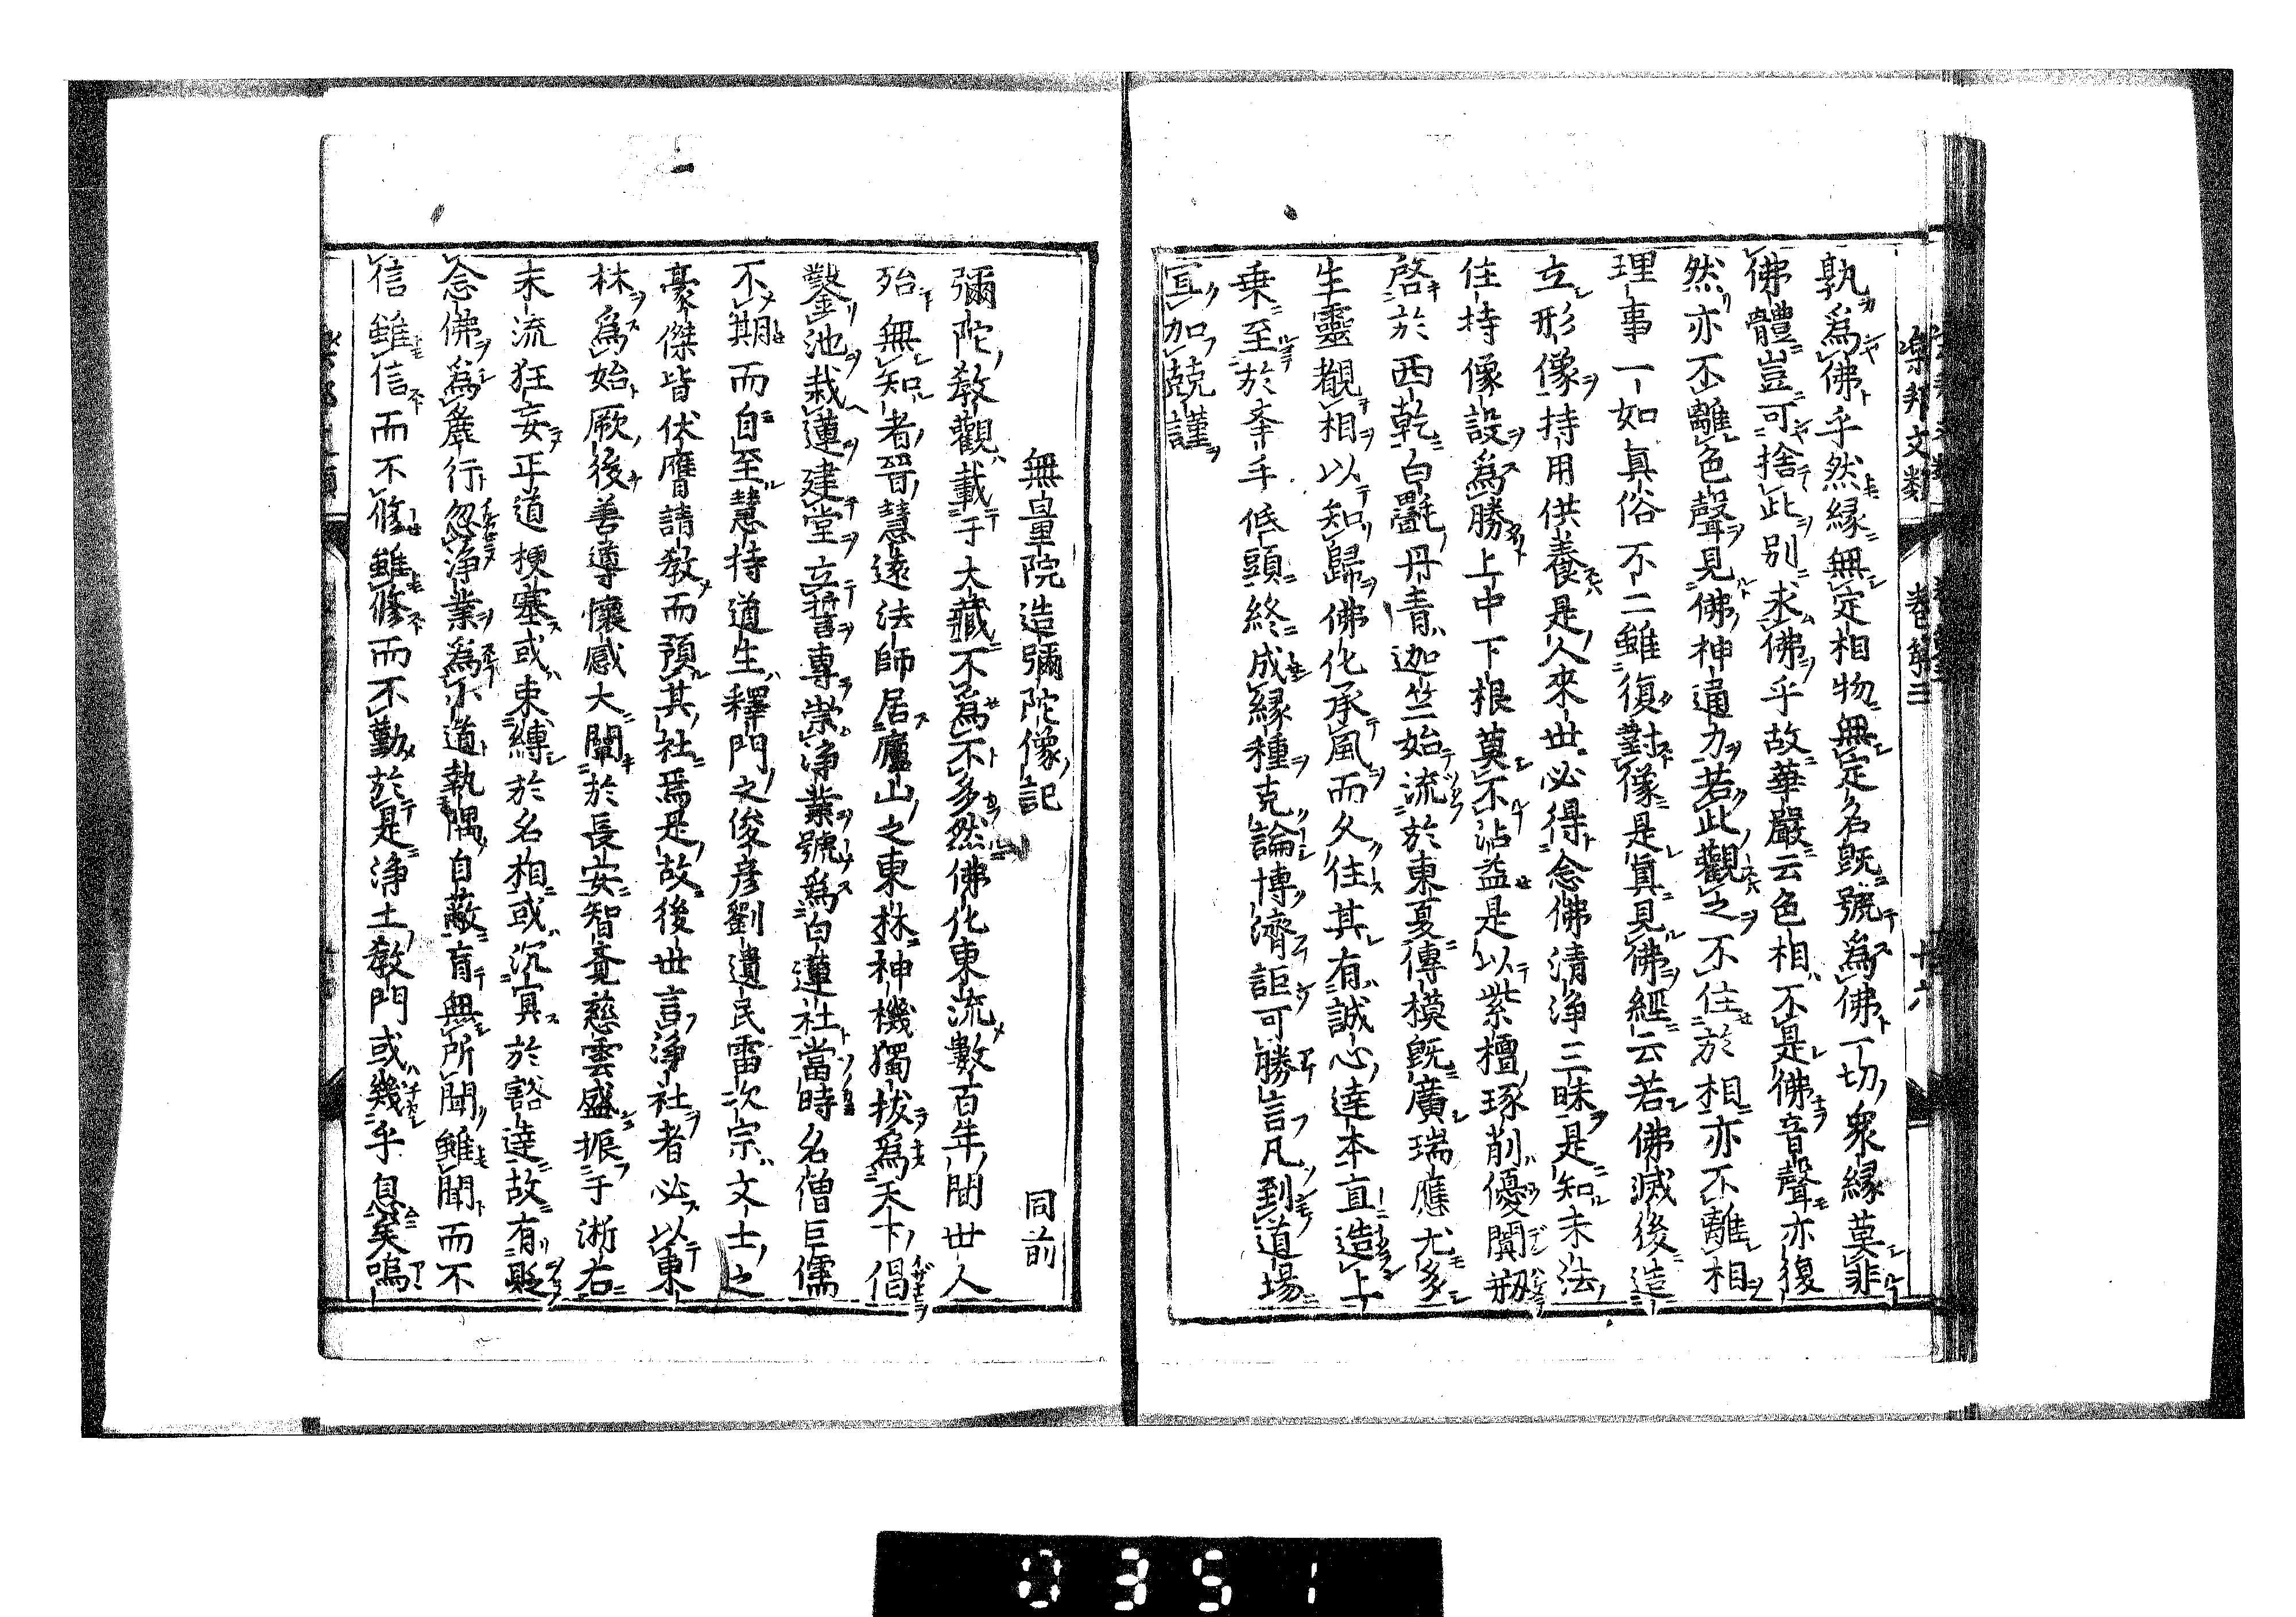 樂邦文類 卷第三 十六
孰爲佛乎然緣無定相物無定名旣號爲佛一切衆緣莫非
佛體豈可捨此別求佛乎故華嚴云色相不是佛音聲亦復
然亦不離色聲見佛神通力若此觀之不住於相亦不離相
理事一如眞俗不二雖復對像是眞見佛經云若佛滅後造
立形像持用供養是人來世必得念佛淸淨三昧是知末法
住持像設爲勝上中下根莫不沾益是以紫檀琢削優闐剏
啓於西乾白氎丹靑迦竺始流於東夏傳模旣廣瑞應尤多
生靈覩相以知歸佛化承風而久往其有誠心達本直造上
乘至於擧手低頭終成緣種克論博濟詎可勝言凡到道場
冝加兢謹
無量院造彌陀像記 同前
彌陀教觀載于大藏不爲不多然佛化東流數百年間世人
殆無知者晉慧遠法師居廬山之東林神機獨拔爲天下倡
鑿池栽蓮建堂立誓專崇淨業號爲白蓮社當時名僧巨儒
不期而自至慧持道生釋門之俊彦劉遺民雷次宗文士之
豪傑皆伏膺請教而預其社焉是故後世言淨社者必以東
林爲始厥後善導懷感大闡於長安智覺慈雲盛振于淅右
末流狂妄正道梗塞或束縛於名相或沉冥於豁達故有貶
念佛爲麁行忽淨業爲小道執隅自蔽盲無所聞雖聞而不
信雖信而不修雖修而不勤於是淨土教門或幾乎息矣嗚
0351